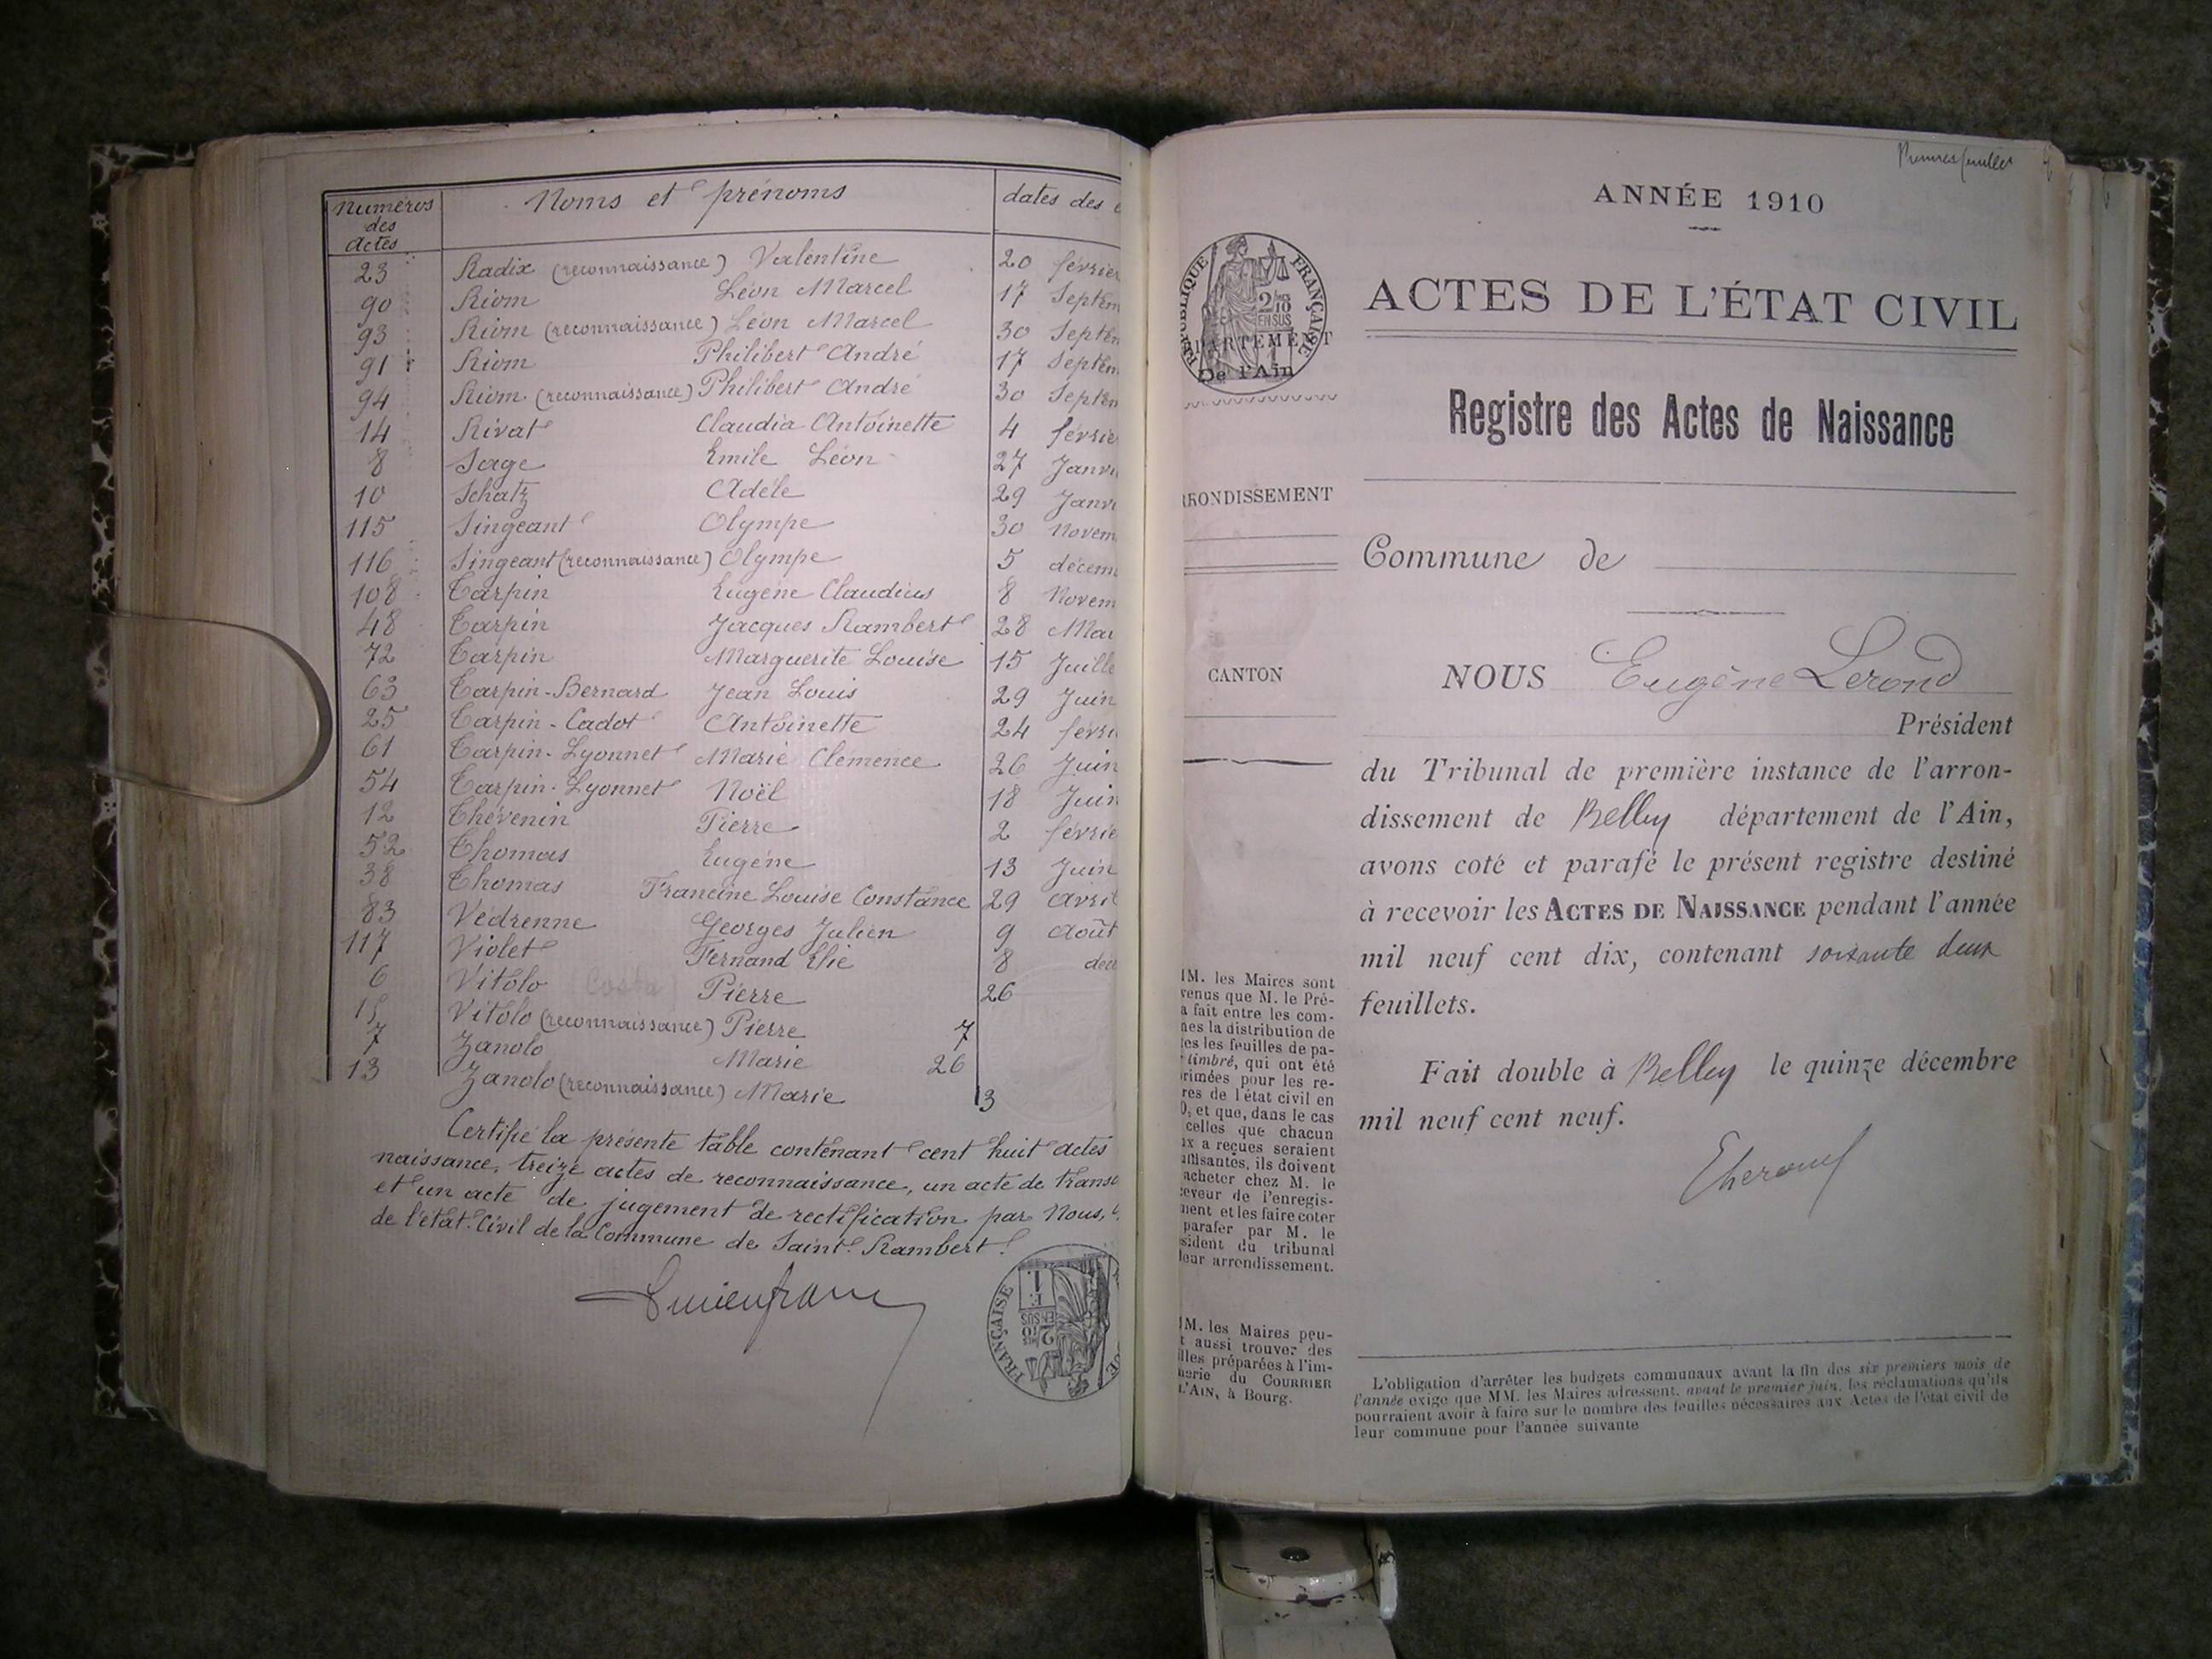 Numéros des Actes Noms et prénoms dates des
23 Radix (reconnaissance) Valentine 20 février
90 Riom Léon Marcel 17 Septem
93 Riom (reconnaissance) Léon Marcel 30 Septem
91 Riom Philibert André 17 Septem
94 Riom (reconnaissance) Philibert André 30 Septem
14 Rivat Claudia Antoinette 4 févrie
8 Sage Emile Léon 27 Janvi
10 Schatz Adèle 29 Janvi
115 Singeant Olympe 30 Novem
116 Singeant (reconnaissance) Olympe 5 décem
108 Tarpin Eugène Claudius 8 Novem
48 Tarpin Jacques Rambert 28 Mai
72 Tarpin Marguerite Louise 15 Juille
63 Tarpin-Bernard Jean Louis 29 Juin
25 Tarpin-Cadot Antoinette 24 févri
61 Tarpin-Lyonnet Marie Clémence 26 Juin
54 Tarpin-Lyonnet Noël 18 Juin
12 Thévenin Pierre 2 févrie
52 Thomas Eugène 13 Juin
38 Thomas Francine Louise Constance 29 Avril
83 Védrenne Georges Julien 9 Août
117 Violet Fernand Elie 8 déce
6 Vitolo Pierre 26
15 Vitolo (reconnaissance) Pierre 7
7 Zanolo Marie 26
13 Zanolo (reconnaissance) Marie 3
Certifié la présente table contenant cent huit actes
naissance, treize actes de reconnaissance, un acte de trans
et un acte de jugement de rectification par Nous,
de l'état-Civil de la Commune de Saint-Rambert.
FRANÇAISE
2/10 EN SUS
ANNÉE 1910
RÉPUBLIQUE FRANÇAISE
2/10 EN SUS
PARTEMENT
De l'Ain
ACTES DE L'ÉTAT CIVIL
Registre des Actes de Naissance
RRONDISSEMENT
Commune de
CANTON
NOUS Eugène Lerond
Président
du Tribunal de première instance de l'arron-
dissement de Belley département de l'Ain,
avons coté et parafé le présent registre destiné
à recevoir les ACTES DE NAISSANCE pendant l'année
mil neuf cent dix, contenant soixante deux
feuillets.
Fait double à Belley le quinze décembre
mil neuf cent neuf.
MM. les Maires sont
venus que M. le Pré-
a fait entre les com-
nes la distribution de
es les feuilles de pa-
timbré, qui ont été
rimées pour les re-
res de l'état civil en
0, et que, dans le cas
celles que chacun
ux a reçues seraient
uffisantes, ils doivent
acheter chez M. le
ceveur de l'enregis-
ment et les faire coter
parafer par M. le
sident du tribunal
leur arrondissement.
MM. les Maires peu-
t aussi trouver des
illes préparées à l'im-
merie du COURRIER
L'AIN, à Bourg.
L'obligation d'arrêter les budgets communaux avant la fin des six premiers mois de
l'année exige que MM. les Maires adressent, avant le premier juin, les réclamations qu'ils
pourraient avoir à faire sur le nombre des feuilles nécessaires aux Actes de l'état civil de
leur commune pour l'année suivante